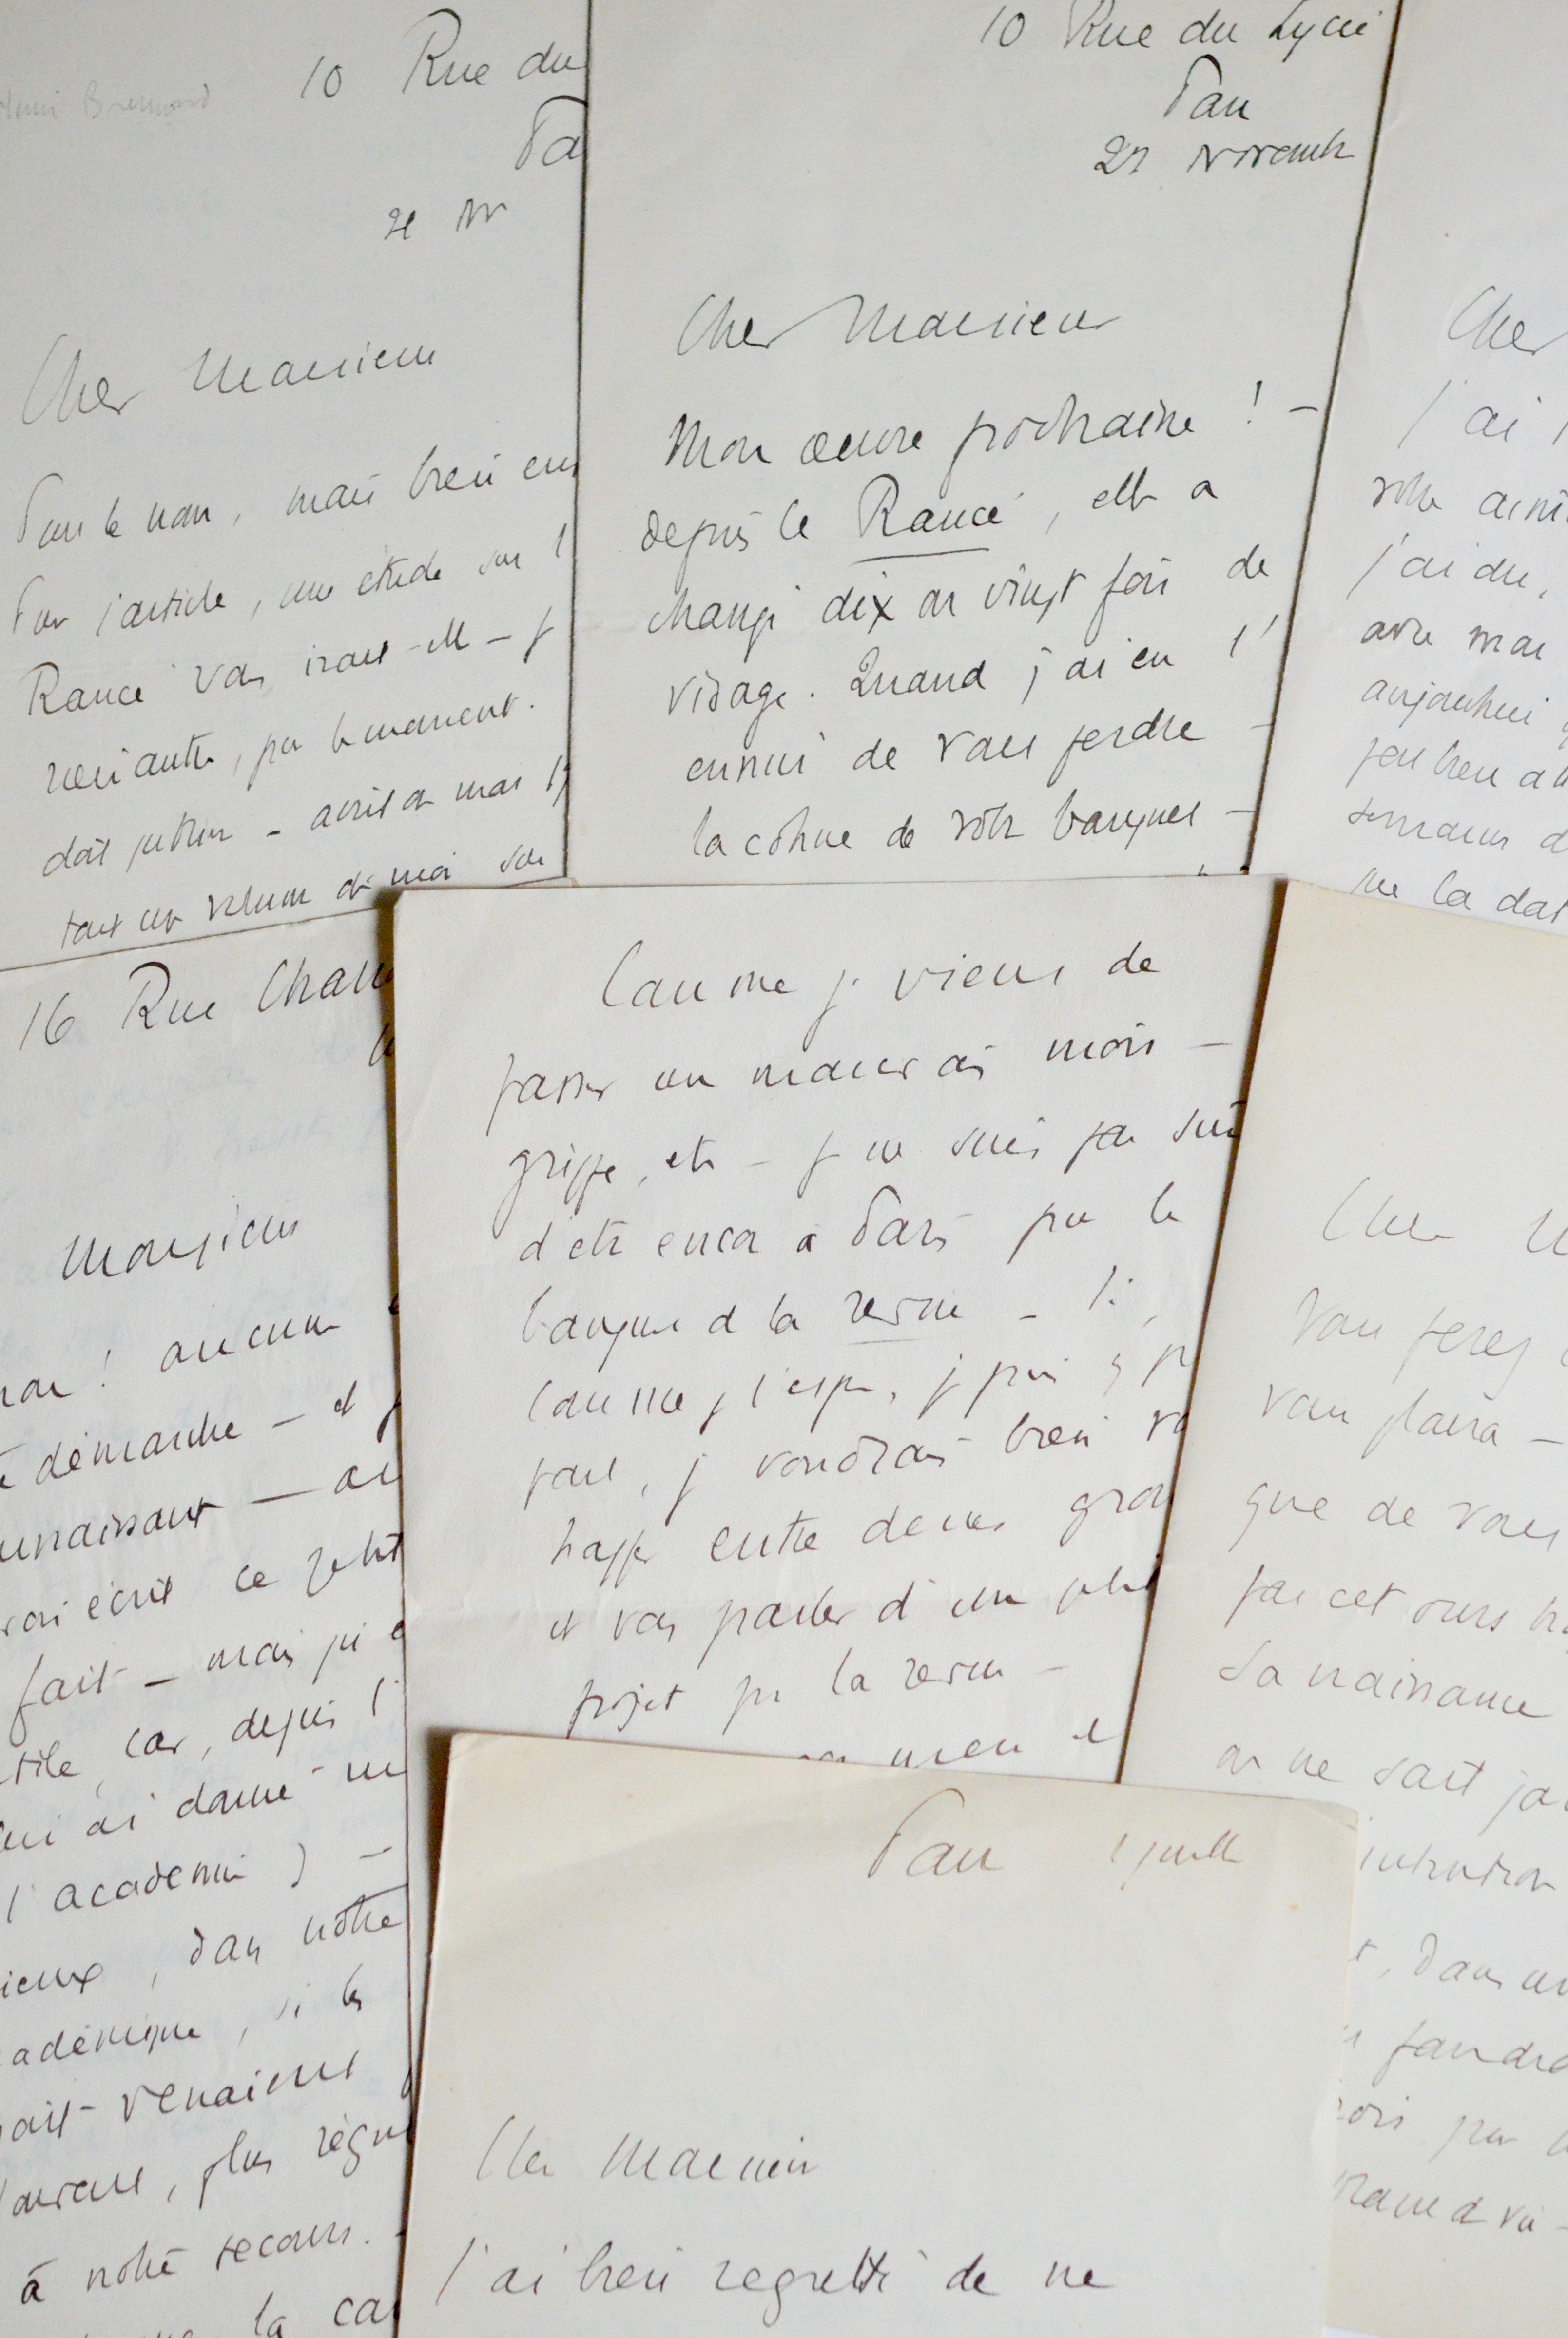 Henri Bremond
10 Rue du
Pa
21 Nov
Cher Monsieur
Pour le nom, mais bien en
Pour l'article, une étude sur l
Rancé vous irait-elle – j
rien autre, pour le moment.
dois publier – avril ou mai
tout un volume de moi sur
10 Rue du Lycée
Pau
27 Novembre
Cher Monsieur
Mon œuvre prochaine ! –
depuis le Rancé, elle a
changé dix ou vingt fois de
visage. Quand j'ai eu l'
ennui de vous perdre –
la cohue de votre banquet –
Cher
J'ai
votre
j'ai du,
avec mon
aujourd'hui
peu bien
semaines d
me la dat
16 Rue Chan
Monsieur
non ! aucune
démarche – et j
nnaissant – au
rai écrit ce petit
fait – mais j'ai
tile, car, depuis l'
lui ai donné
l'académie) –
ieux, dans notre
adémique, si les
ait venaient
plus régu
à notre secours.
la ca
Comme je viens de
passer un mauvais mois –
grippe, etc – je ne suis pas sûr
d'être encore à Paris pour le
banquet de la revue – Si,
comme je l'espère, je puis y p
part, je voudrais bien vo
happer entre deux gro
et vous parler d'un petit
projet pour la revue –
Cher M
Vous ferez
vous plaira –
que de vous
par cet ours
Sa naissance
on ne sait ja
intention
t, dans un
faudra
Pau 1 juillet
Cher Monsieur
J'ai bien regretté de ne